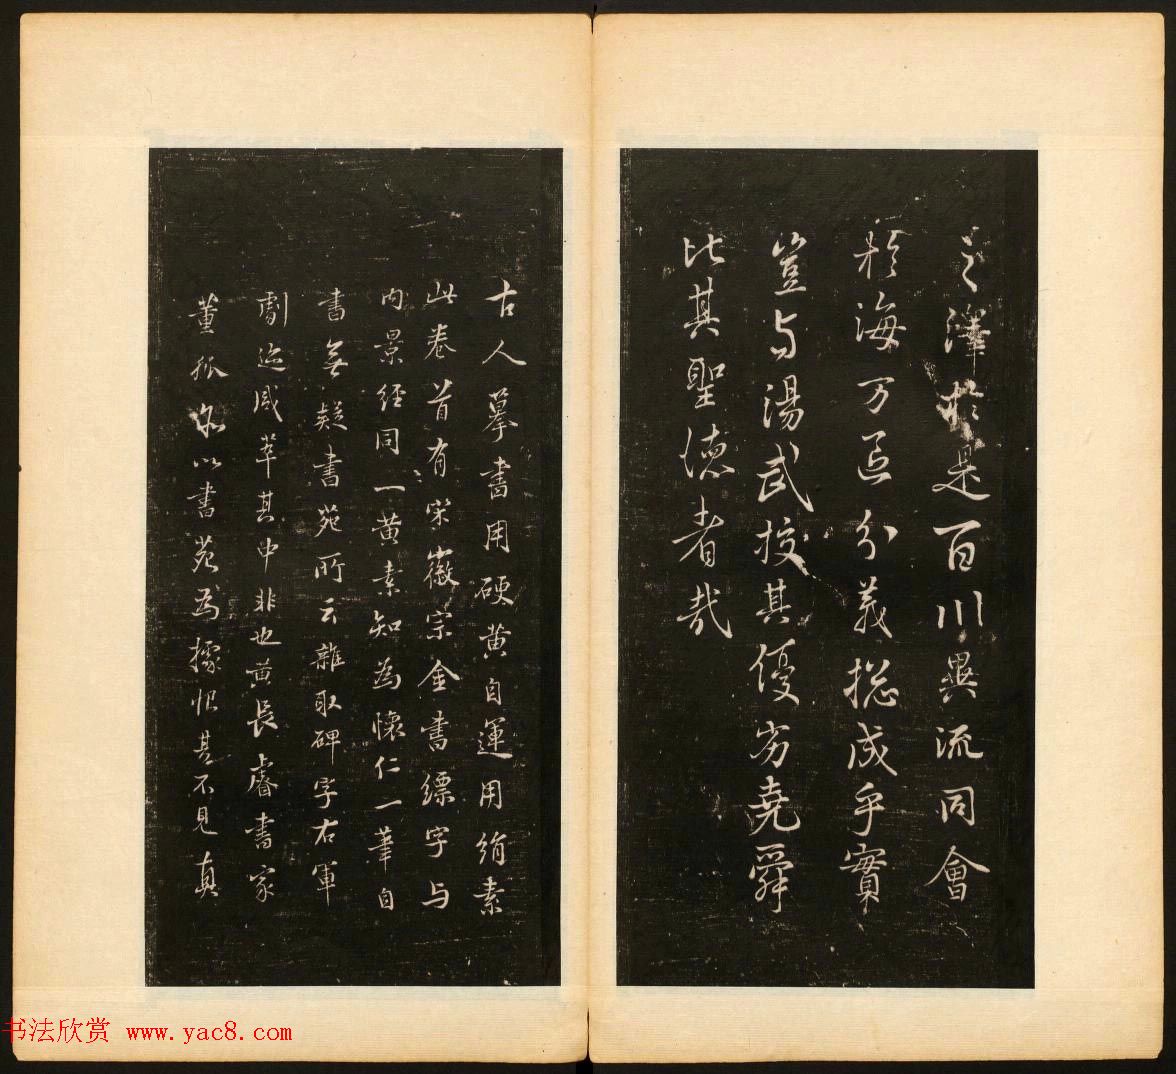 之澤於是百川異流同會
於海万區分義揔成乎實
豈与湯武挍其優劣堯舜
比其聖德者哉
古人摹書用硬黄自運用絹素
此卷首有宋徽宗金書縹字与
内景經同一黄素知為懷仁一筆自
書無疑書苑所云雜取碑字右軍
劇迹咸萃其中非也黄長睿書家
董狐亦以書苑為據恨其不見真
书法欣赏 www.yac8.com